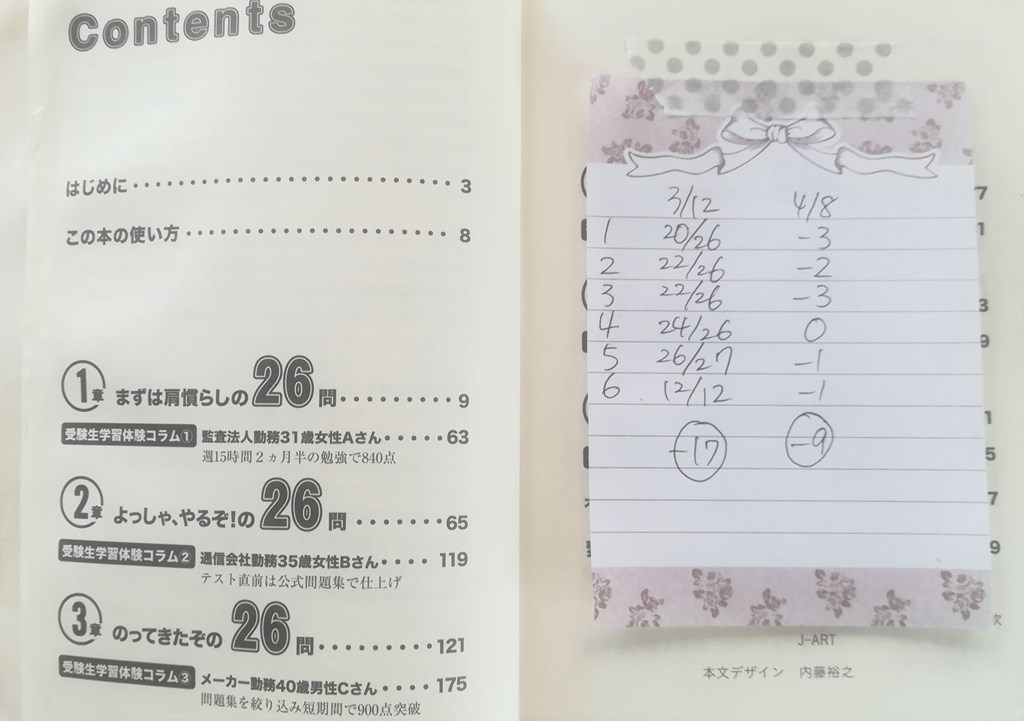 Contents
はじめに・・・・・・・・・・・・・・・・・・・・・・・・・・・・3
この本の使い方・・・・・・・・・・・・・・・・・・・・・・・・8
1章 まずは肩慣らしの26問・・・・・・・・・9
受験生学習体験コラム① 監査法人勤務31歳女性Aさん・・・・・63
週15時間2ヵ月半の勉強で840点
2章 よっしゃ、やるぞ!の26問・・・・・・・65
受験生学習体験コラム② 通信会社勤務35歳女性Bさん・・・・119
テスト直前は公式問題集で仕上げ
3章 のってきたぞの26問・・・・・・・・・121
受験生学習体験コラム③ メーカー勤務40歳男性Cさん・・・・175
問題集を絞り込み短期間で900点突破
3/12 4/8
1 20/26 -3
2 22/26 -2
3 22/26 -3
4 24/26 0
5 26/27 -1
6 12/12 -1
-17 -9
7
1
3
9
1
5
7
9
次
J-ART
本文デザイン 内藤裕之